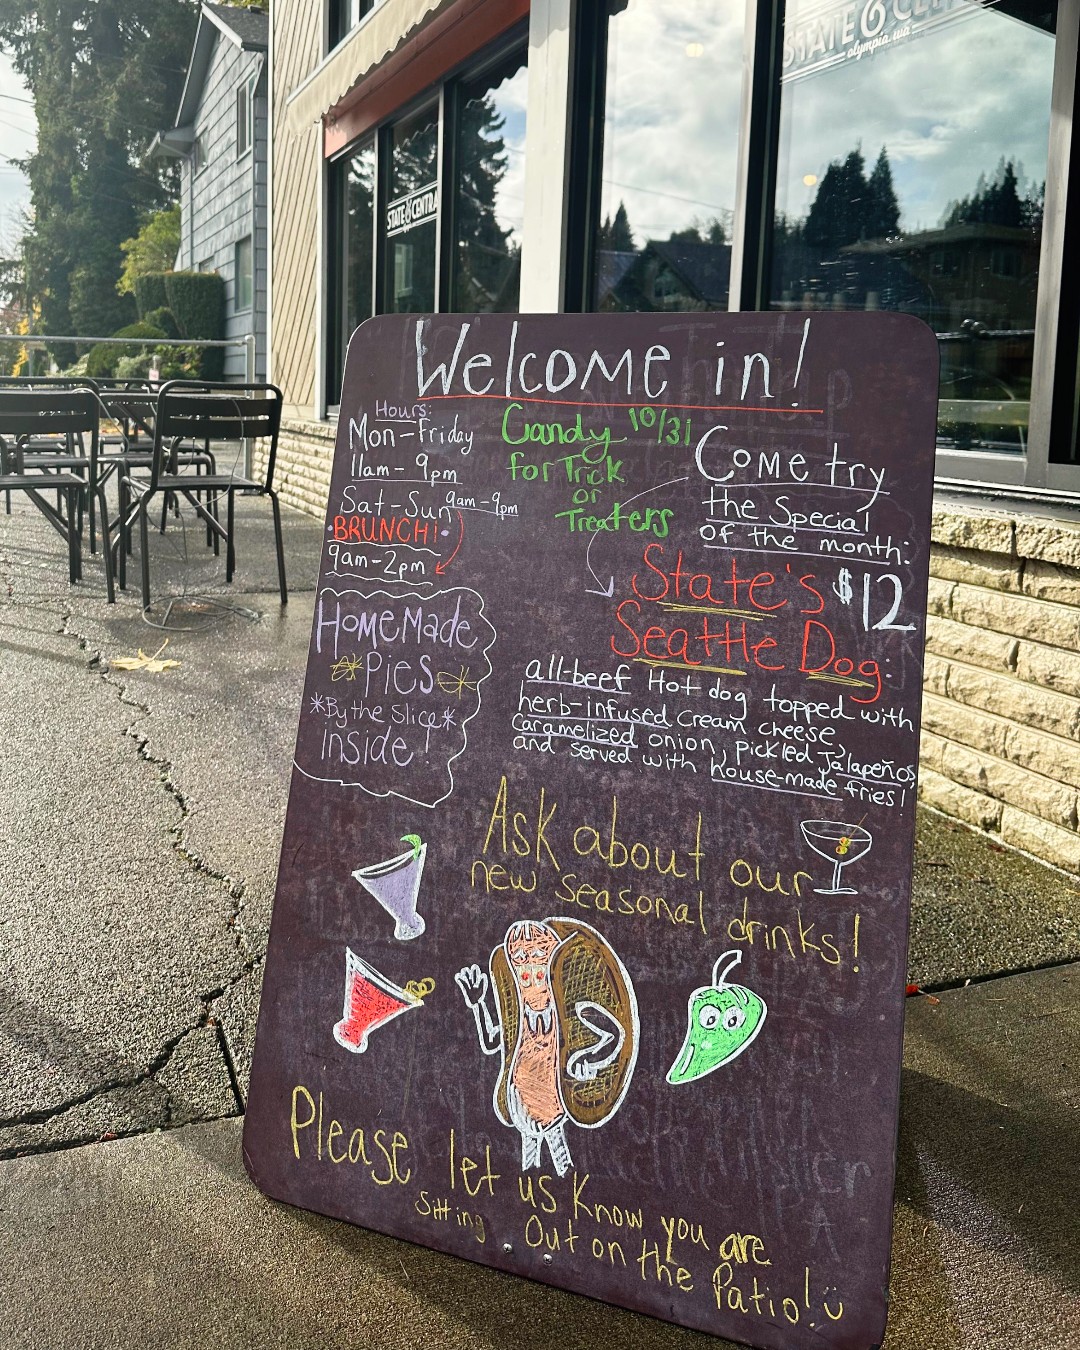 STATE & CENTRAL
olympia, wa
STATE & CENTRA
Welcome in!
Hours:
Mon-Friday
11am - 9pm
Sat-Sun 9am-9pm
BRUNCH!
9am-2pm
Candy 10/31
for Trick
or
Treaters
Come try
the Special
of the month:
State's $12
Seattle Dog:
all-beef Hot dog topped with
herb-infused cream cheese,
caramelized onion, pickled Jalapeños,
and served with house-made fries!
HomeMade
Pies
*By the Slice*
inside!
Ask about our
new seasonal drinks!
Please let us know you are
Sitting Out on the Patio!